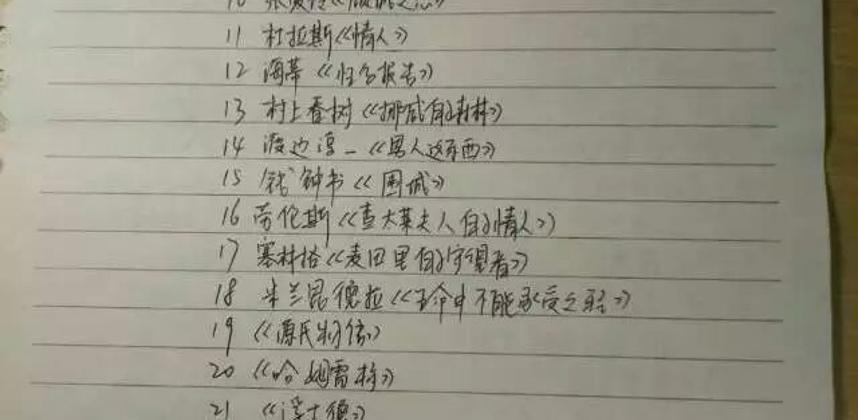 10 张爱玲《倾城之恋》
11 杜拉斯《情人》
12 海蒂《性学报告》
13 村上春树《挪威的森林》
14 渡边淳一《男人这东西》
15 钱钟书《围城》
16 劳伦斯《查太莱夫人的情人》
17 塞林格《麦田里的守望者》
18 米兰昆德拉《生命中不能承受之轻》
19 《源氏物语》
20 《哈姆雷特》
21 《浮士德》